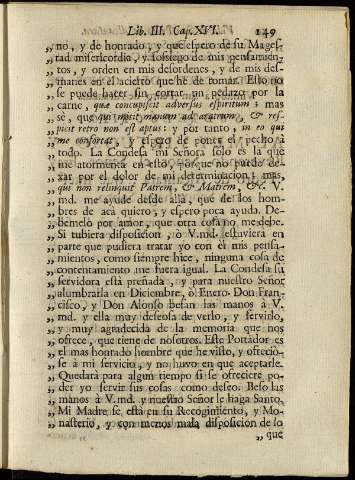 Lib. III. Cap. XVI. 149
„ no, y de honrado, y que espero de su Mages-
„ tad misericordia, y sossiego de mis pensamien-
„ tos, y orden en mis desordenes, y de mis des-
„ manes en el acierto que he de tomar. Esto no
„ se puede hacer sin cortar un pedazo por la
„ carne, quæ concupiscit adversus spiritum: mas
„ sè, que qui mittit manum ad aratrum, & res-
„ picit retro non est aptus: y por tanto, in eo qui
„ me confortat, y espero de poner el pecho à
„ todo. La Condesa mi Señora solo es la que
„ me atormenta en esto, porque no puede de-
„ xar por el dolor de mi determinacion: mas,
„ qui non relinquit Patrem, & Matrem, &c. V.
„ md. me ayude desde allà, que de los hom-
„ bres de acà quiero, y espero poca ayuda. De-
„ bemelo por amor, que otra cosa no me debe.
„ Si tubiera disposicion, ò V.md. estuviera en
„ parte que pudiera tratar yo con èl mis pensa-
„ mientos, como siempre hice, ninguna cosa de
„ contentamiento me fuera igual. La Condesa su
„ servidora està preñada, y para nuestro Señor
„ alumbrarla en Diciembre, ò Enero. Don Fran-
„ cisco, y Don Alonso besan las manos à V.
„ md. y ella muy deseosa de verlo, y servirlo,
„ y muy agradecida de la memoria que nos
„ ofrece, que tiene de nosotros. Este Portador es
„ el mas honrado hombre que he visto, y ofrecio-
„ se à mi servicio, y no huvo en que aceptarle.
„ Quedarà para algun tiempo si se ofreciere po-
„ der yo servir sus cosas como deseo. Beso las
„ manos à V.md. y nuestro Señor le haga Santo.
„ Mi Madre se està en su Recogimiento, y Mo-
„ nasterio, y con menos mala disposicion de lo
„ que